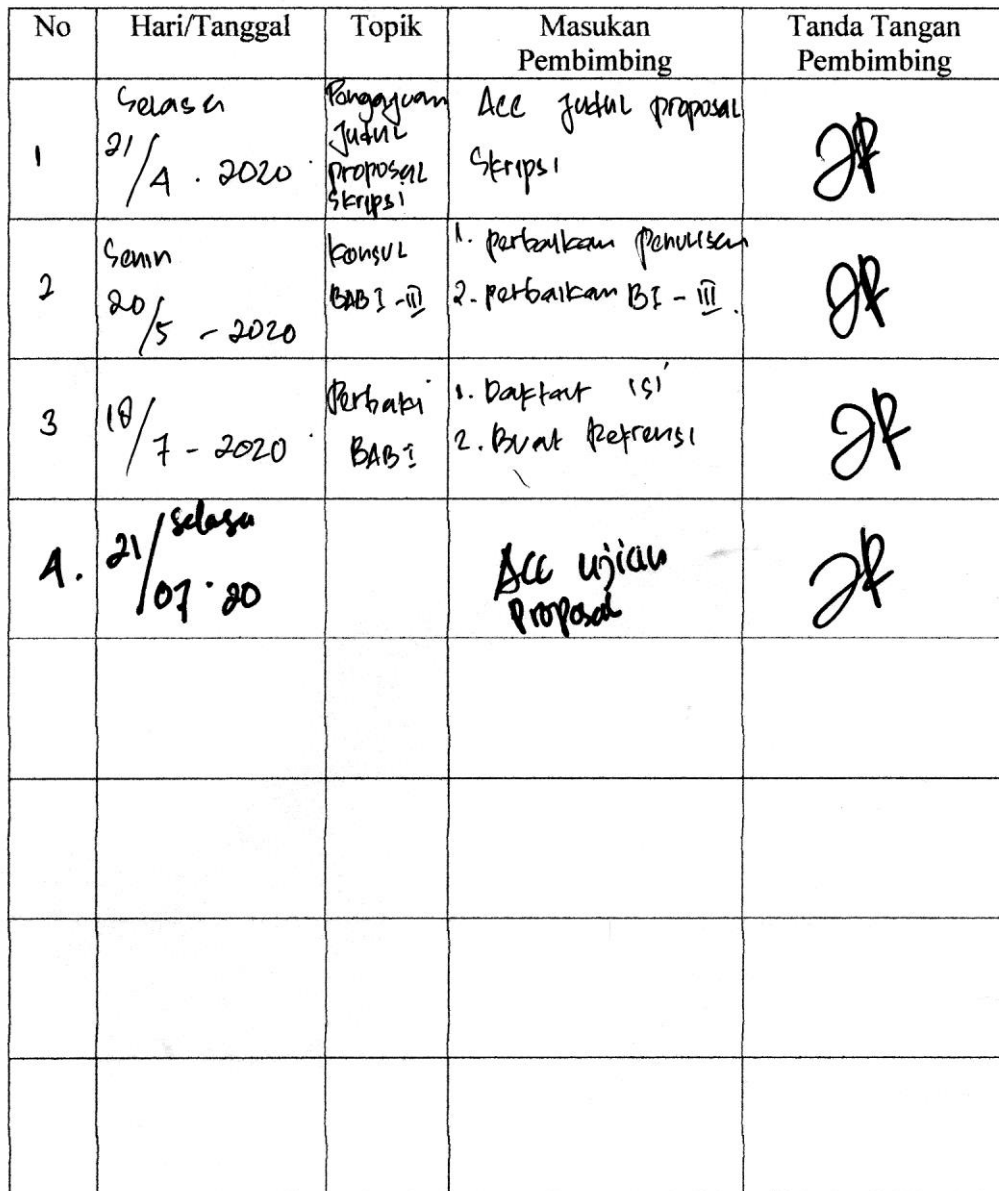 No Hari/Tanggal Topik Masukan Pembimbing Tanda Tangan Pembimbing
1
Selasa
21/4 . 2020
Pengajuan
Judul
proposal
Skripsi
Acc Judul proposal
Skripsi
2
Senin
20/5 - 2020
Konsul
BAB I - III
1. perbaikan Penulisan
2. perbaikan BI - III.
3
18/7 - 2020
Perbaki
BAB I
1. Daftar isi
2. Buat Refrensi
4.
21/selasa
07.20
Acc ujian
Proposal